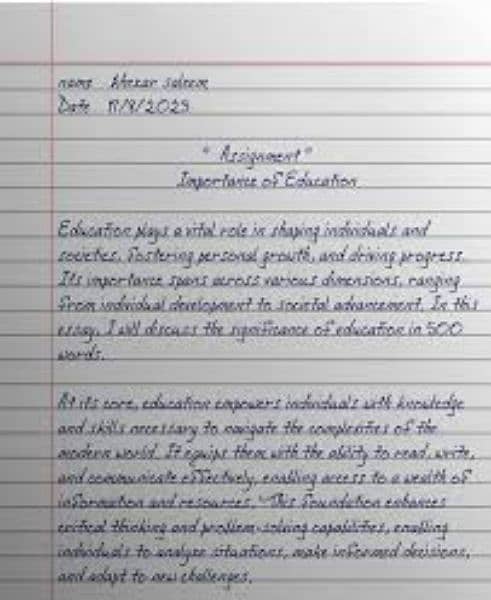 name Abexar saleem
Date 11/8/2023
" Assignment "
Importance of Education
Education plays a vital role in shaping individuals and
societies, fostering personal growth, and driving progress.
Its importance spans across various dimensions, ranging
from individual development to societal advancement. In this
essay, I will discuss the significance of education in 500
words.
At its core, education empowers individuals with knowledge
and skills necessary to navigate the complexities of the
modern world. It equips them with the ability to read, write,
and communicate effectively, enabling access to a wealth of
information and resources. This foundation enhances
critical thinking and problem-solving capabilities, enabling
individuals to analyze situations, make informed decisions,
and adapt to new challenges.